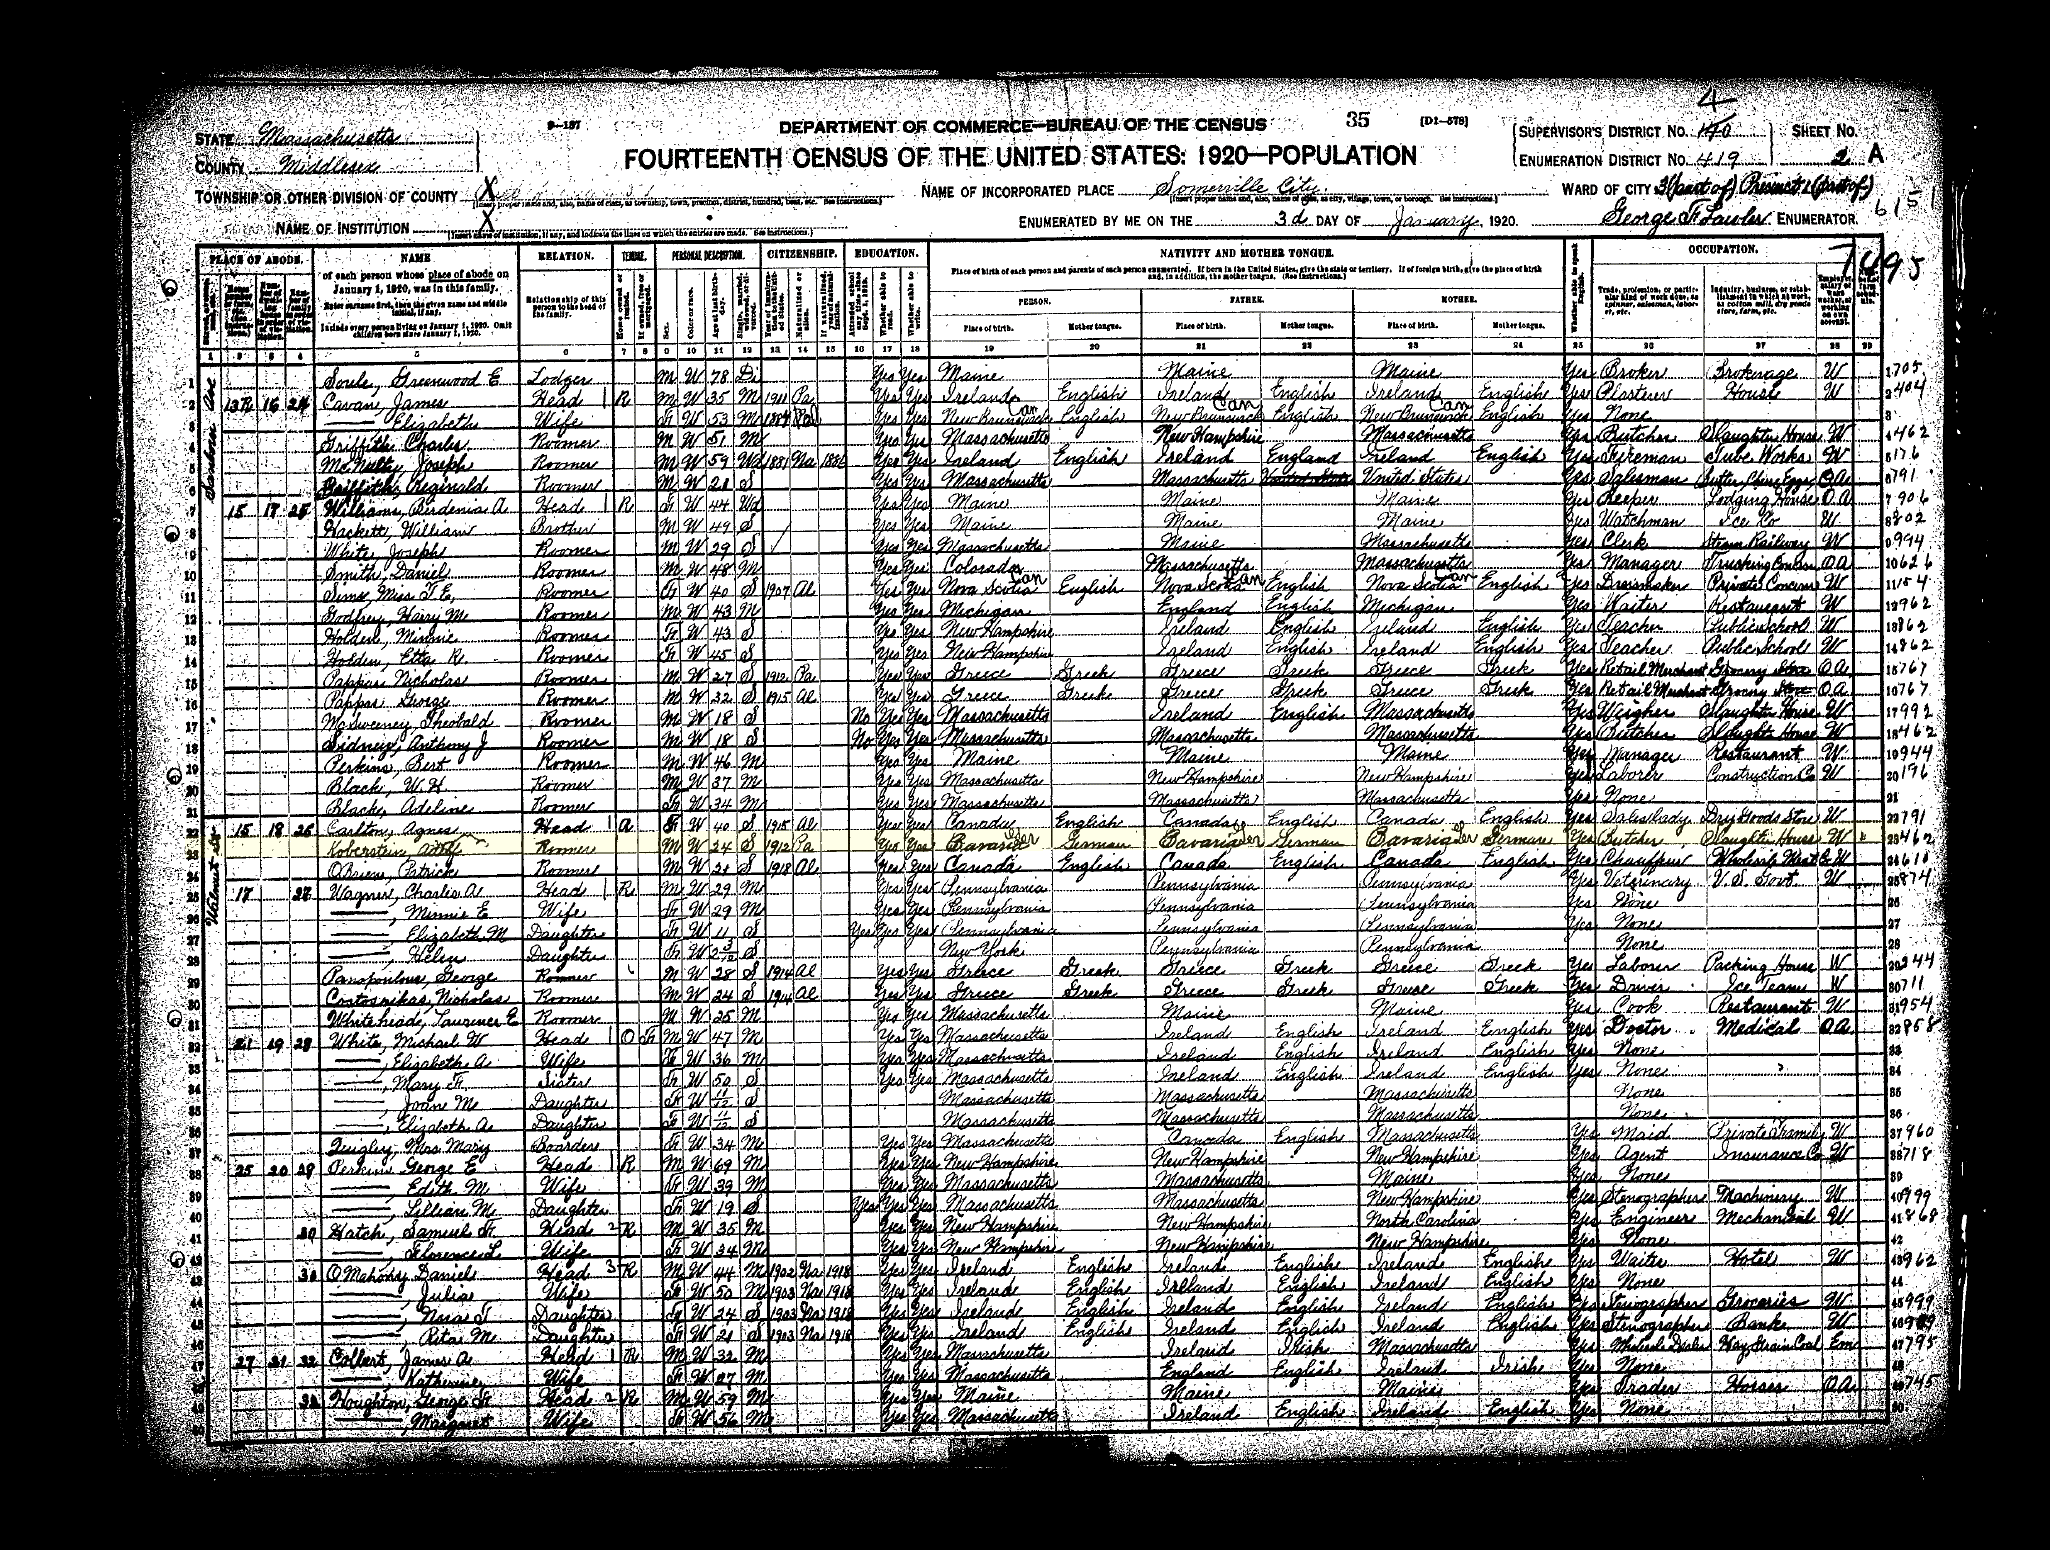 4
9-137
DEPARTMENT OF COMMERCE—BUREAU OF THE CENSUS
35
[D1-578]
STATE Massachusetts
COUNTY Middlesex
FOURTEENTH CENSUS OF THE UNITED STATES: 1920—POPULATION
SUPERVISOR'S DISTRICT NO. SHEET NO.
ENUMERATION DISTRICT NO. 419 2 A
TOWNSHIP OR OTHER DIVISION OF COUNTY X
NAME OF INCORPORATED PLACE Somerville City
WARD OF CITY 3 (part of) Precinct 1 (part of)
615
NAME OF INSTITUTION X
ENUMERATED BY ME ON THE 3d DAY OF January, 1920. George F. Lawler ENUMERATOR.
PLACE OF ABODE. NAME RELATION. TENURE. PERSONAL DESCRIPTION. CITIZENSHIP. EDUCATION. NATIVITY AND MOTHER TONGUE. OCCUPATION.
of each person whose place of abode on January 1, 1920, was in this family.
Enter surname first, then the given name and middle initial, if any.
Include every person living on January 1, 1920. Omit children born since January 1, 1920.
Relationship of this person to the head of the family.
Place of birth of each person and parents of each person enumerated. If born in the United States, give the state or territory. If of foreign birth, give the place of birth and, in addition, the mother tongue. (See instructions.)
PERSON. FATHER. MOTHER.
Place of birth. Mother tongue. Place of birth. Mother tongue. Place of birth. Mother tongue.
1 2 3 4 5 6 7 8 9 10 11 12 13 14 15 16 17 18 19 20 21 22 23 24 25 26 27 28 29
1 Soule, Greenwood E Lodger M W 78 Di Yes Yes Maine Maine Maine Yes Broker Brokerage W 1 705
2 16 24 Cavan, James Head 1 R M W 35 M 1911 Pa Yes Yes Ireland English Ireland English Ireland English Yes Plasterer House W 2 404
3 Elizabeth Wife F W 53 M Yes Yes New Brunswick Can English New Brunswick Can English New Brunswick Can English Yes None 3
4 Griffith, Charles Roomer M W 51 M Yes Yes Massachusetts New Hampshire Massachusetts Yes Butcher Slaughter House W 4 462
5 McNulty, Joseph Roomer M W 59 Wd 1881 Na 1886 Yes Yes Ireland English Ireland England Ireland English Yes Fireman Tube Works W 5 176
6 Griffith, Reginald Roomer M W 21 S Yes Yes Massachusetts Massachusetts United States Yes Salesman O A 6 791
7 15 17 25 Williams, A Head 1 R F W 44 Wd Yes Yes Maine Maine Maine Yes Keeper Lodging House O A 7 906
8 Hackett, William Brother M W 49 S Yes Yes Maine Maine Maine Yes Watchman Ice Co W 8 802
9 White, Joseph Roomer M W 29 S Yes Yes Massachusetts Maine Massachusetts Yes Clerk Steam Railway W 9 994
10 Smith, Daniel Roomer M W 48 M Yes Yes Colorado Massachusetts Massachusetts Yes Manager Trucking Concern O A 10 626
11 Sims, Miss F. E. Roomer F W 40 S 1907 Al Yes Yes Nova Scotia Can English Nova Scotia Can English Nova Scotia Can English Yes Dressmaker Private Concern W 11 154
12 Godfrey, Harry M. Roomer M W 43 M Yes Yes Michigan England English Michigan Yes Waiter Restaurant W 12 962
13 Holden, Minnie Roomer F W 43 S Yes Yes New Hampshire Ireland English Ireland English Yes Teacher Public School W 13 862
14 Holden, Etta R. Roomer F W 45 S Yes Yes New Hampshire Ireland English Ireland English Yes Teacher Public School W 14 862
15 Pappas, Nicholas Roomer M W 27 S 1912 Pa Yes Yes Greece Greek Greece Greek Greece Greek Yes Retail Merchant Grocery Store O A 15 767
16 Pappas, George Roomer M W 32 S 1915 Al Yes Yes Greece Greek Greece Greek Greece Greek Yes Retail Merchant Grocery Store O A 16 767
17 McSweeney, Theobald Roomer M W 18 S No Yes Yes Massachusetts Ireland English Massachusetts Yes Weigher Slaughter House W 17 992
18 Sidney, Anthony J Roomer M W 18 S No Yes Yes Massachusetts Massachusetts Massachusetts Yes Butcher Slaught House W 18 462
19 Perkins, Bert Roomer M W 46 M Yes Yes Maine Maine Maine Yes Manager Restaurant W 19 944
20 Black, W. H Roomer M W 37 M Yes Yes Massachusetts New Hampshire New Hampshire Yes Laborer Construction Co W 20 196
21 Black, Adeline Roomer F W 34 M Yes Yes Massachusetts Massachusetts Massachusetts Yes None 21
22 15 18 26 Carlton, Agnes Head 1 R F W 40 S 1915 Al Yes Yes Canada English Canada English Canada English Yes Saleslady Dry Goods Store W 22 791
23 Koberstein, Adolf Roomer M W 24 S 1912 Pa Yes Yes Bavaria Ger German Bavaria Ger German Bavaria Ger German Yes Butcher Slaughter House W 23 462
24 O'Brien, Patrick Roomer M W 21 S 1918 Al Yes Yes Canada English Canada English Canada English Yes Chauffeur Wholesale Meat W 24 610
25 17 27 Wagner, Charles A. Head 1 R M W 29 M Yes Yes Pennsylvania Pennsylvania Pennsylvania Yes Veterinary U. S. Govt. W 25 874
26 Minnie E Wife F W 29 M Yes Yes Pennsylvania Pennsylvania Pennsylvania Yes None 26
27 Elizabeth M Daughter F W 11 S Yes Yes Yes Pennsylvania Pennsylvania Pennsylvania Yes None 27
28 Helen Daughter F W 2 3/12 S New York Pennsylvania Pennsylvania None 28
29 Panopoulous, George Roomer M W 28 S 1914 Al Yes Yes Greece Greek Greece Greek Greece Greek Yes Laborer Packing House W 29 244
30 Costosrikas, Nicholas Roomer M W 24 S 1914 Al Yes Yes Greece Greek Greece Greek Greece Greek Yes Driver Ice Team W 30 711
31 Whitehead, Laurence E Roomer M W 25 M Yes Yes Massachusetts Maine Maine Yes Cook Restaurant W 31 954
32 21 19 28 White, Michael W Head 1 O Fr M W 47 M Yes Yes Massachusetts Ireland English Ireland English Yes Doctor Medical O A 32 858
33 Elizabeth A Wife F W 36 M Yes Yes Massachusetts Ireland English Ireland English Yes None 33
34 Mary F. Sister F W 50 S Yes Yes Massachusetts Ireland English Ireland English Yes None 34
35 Joan M. Daughter F W 11/12 S Massachusetts Massachusetts Massachusetts None 35
36 Elizabeth A. Daughter F W 11/12 S Massachusetts Massachusetts Massachusetts None 36
37 Quigley, Mrs. Mary Boarder F W 34 M Yes Yes Massachusetts Canada English Massachusetts Yes Maid Private Family W 37 960
38 25 20 29 Perkins, George E. Head 1 R M W 69 M Yes Yes New Hampshire New Hampshire New Hampshire Yes Agent Insurance Co W 38 718
39 Edith M. Wife F W 39 M Yes Yes Massachusetts Massachusetts Maine Yes None 39
40 Lillian M. Daughter F W 19 S Yes Yes Yes Massachusetts Massachusetts New Hampshire Yes Stenographer Machinery W 40 999
41 30 Hatch, Samuel F. Head 2 R M W 35 M Yes Yes New Hampshire New Hampshire North Carolina Yes Engineer Mechanical W 41 868
42 Florence L Wife F W 34 M Yes Yes New Hampshire New Hampshire New Hampshire Yes None 42
43 31 O'Mahony, Daniel Head 3 R M W 44 M 1902 Na 1918 Yes Yes Ireland English Ireland English Ireland English Yes Waiter Hotel W 43 962
44 Julia Wife F W 50 M 1903 Na 1918 Yes Yes Ireland English Ireland English Ireland English Yes None 44
45 Nora T Daughter F W 24 S 1903 Na 1918 Yes Yes Ireland English Ireland English Ireland English Yes Stenographer Groceries W 45 999
46 Rita M. Daughter F W 21 S 1903 Na 1918 Yes Yes Ireland English Ireland English Ireland English Yes Stenographer Bank W 46
47 27 21 32 Colbert, James A. Head 1 R M W 32 M Yes Yes Massachusetts Ireland Irish Massachusetts Yes Wholesale Dealer Hay Grain Coal Em 47 795
48 Katherine Wife F W 27 M Yes Yes Massachusetts England English Ireland Irish Yes None 48
49 Houghton, George F. Head 2 R M W 59 M Yes Yes Maine Maine Maine Yes Trader Horses O A 49 745
50 Margaret Wife F W 56 M Yes Yes Massachusetts Ireland English Ireland English Yes None 50
Walnut St